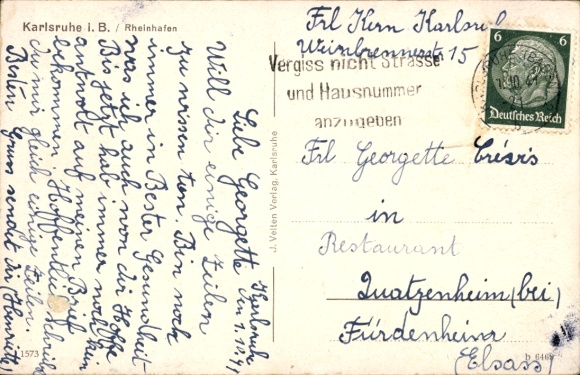 Karlsruhe i. B. / Rheinhafen
Frl Kern Karlsruh
Weinbrennerstr 15
Vergiss nicht Strasse
und Hausnummer
anzugeben
6 6
Deutsches Reich
Frl Georgette
in
Restaurant
Quatzenheim (bei)
Fürdenheim
(Elsass)
J. Velten Verlag, Karlsruhe
Karlsruhe
Den 1.10.41
Liebe Georgette
Will dir einige Zeilen
zu Bin noch
immer in Bester Gesundheit
was ich auch von dir Hoffe
Bis jetzt hab immer noch kein
antwolt auf meinen Brief
bekommen Hoffentlich schreibs
du mir gleich einige Zeilen.
Besten Gruss sendt dir (Henriette)
1573